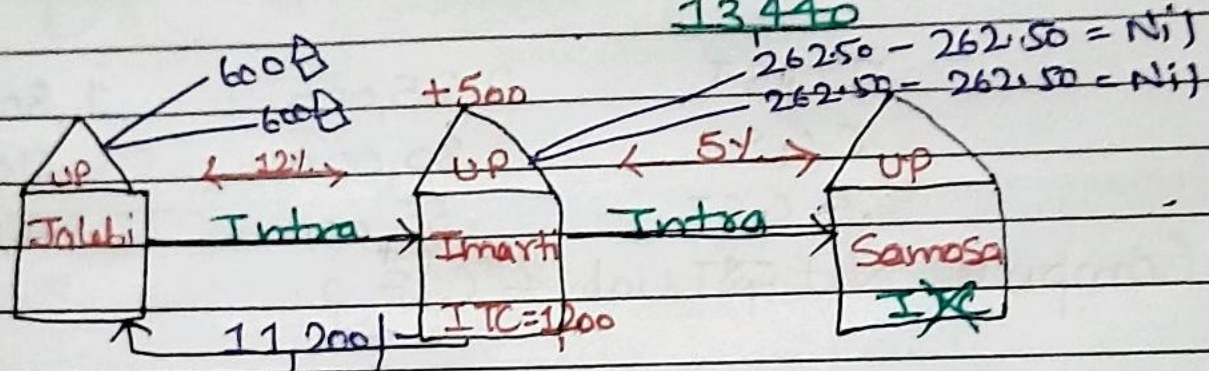 13,440
600 262.50 - 262.50 = Nil
600 +500 262.50 - 262.50 = Nil
UP 12% UP 5% UP
Jalebi Intra Imarti Intra Samosa
11,200/- ITC=1200 ITC